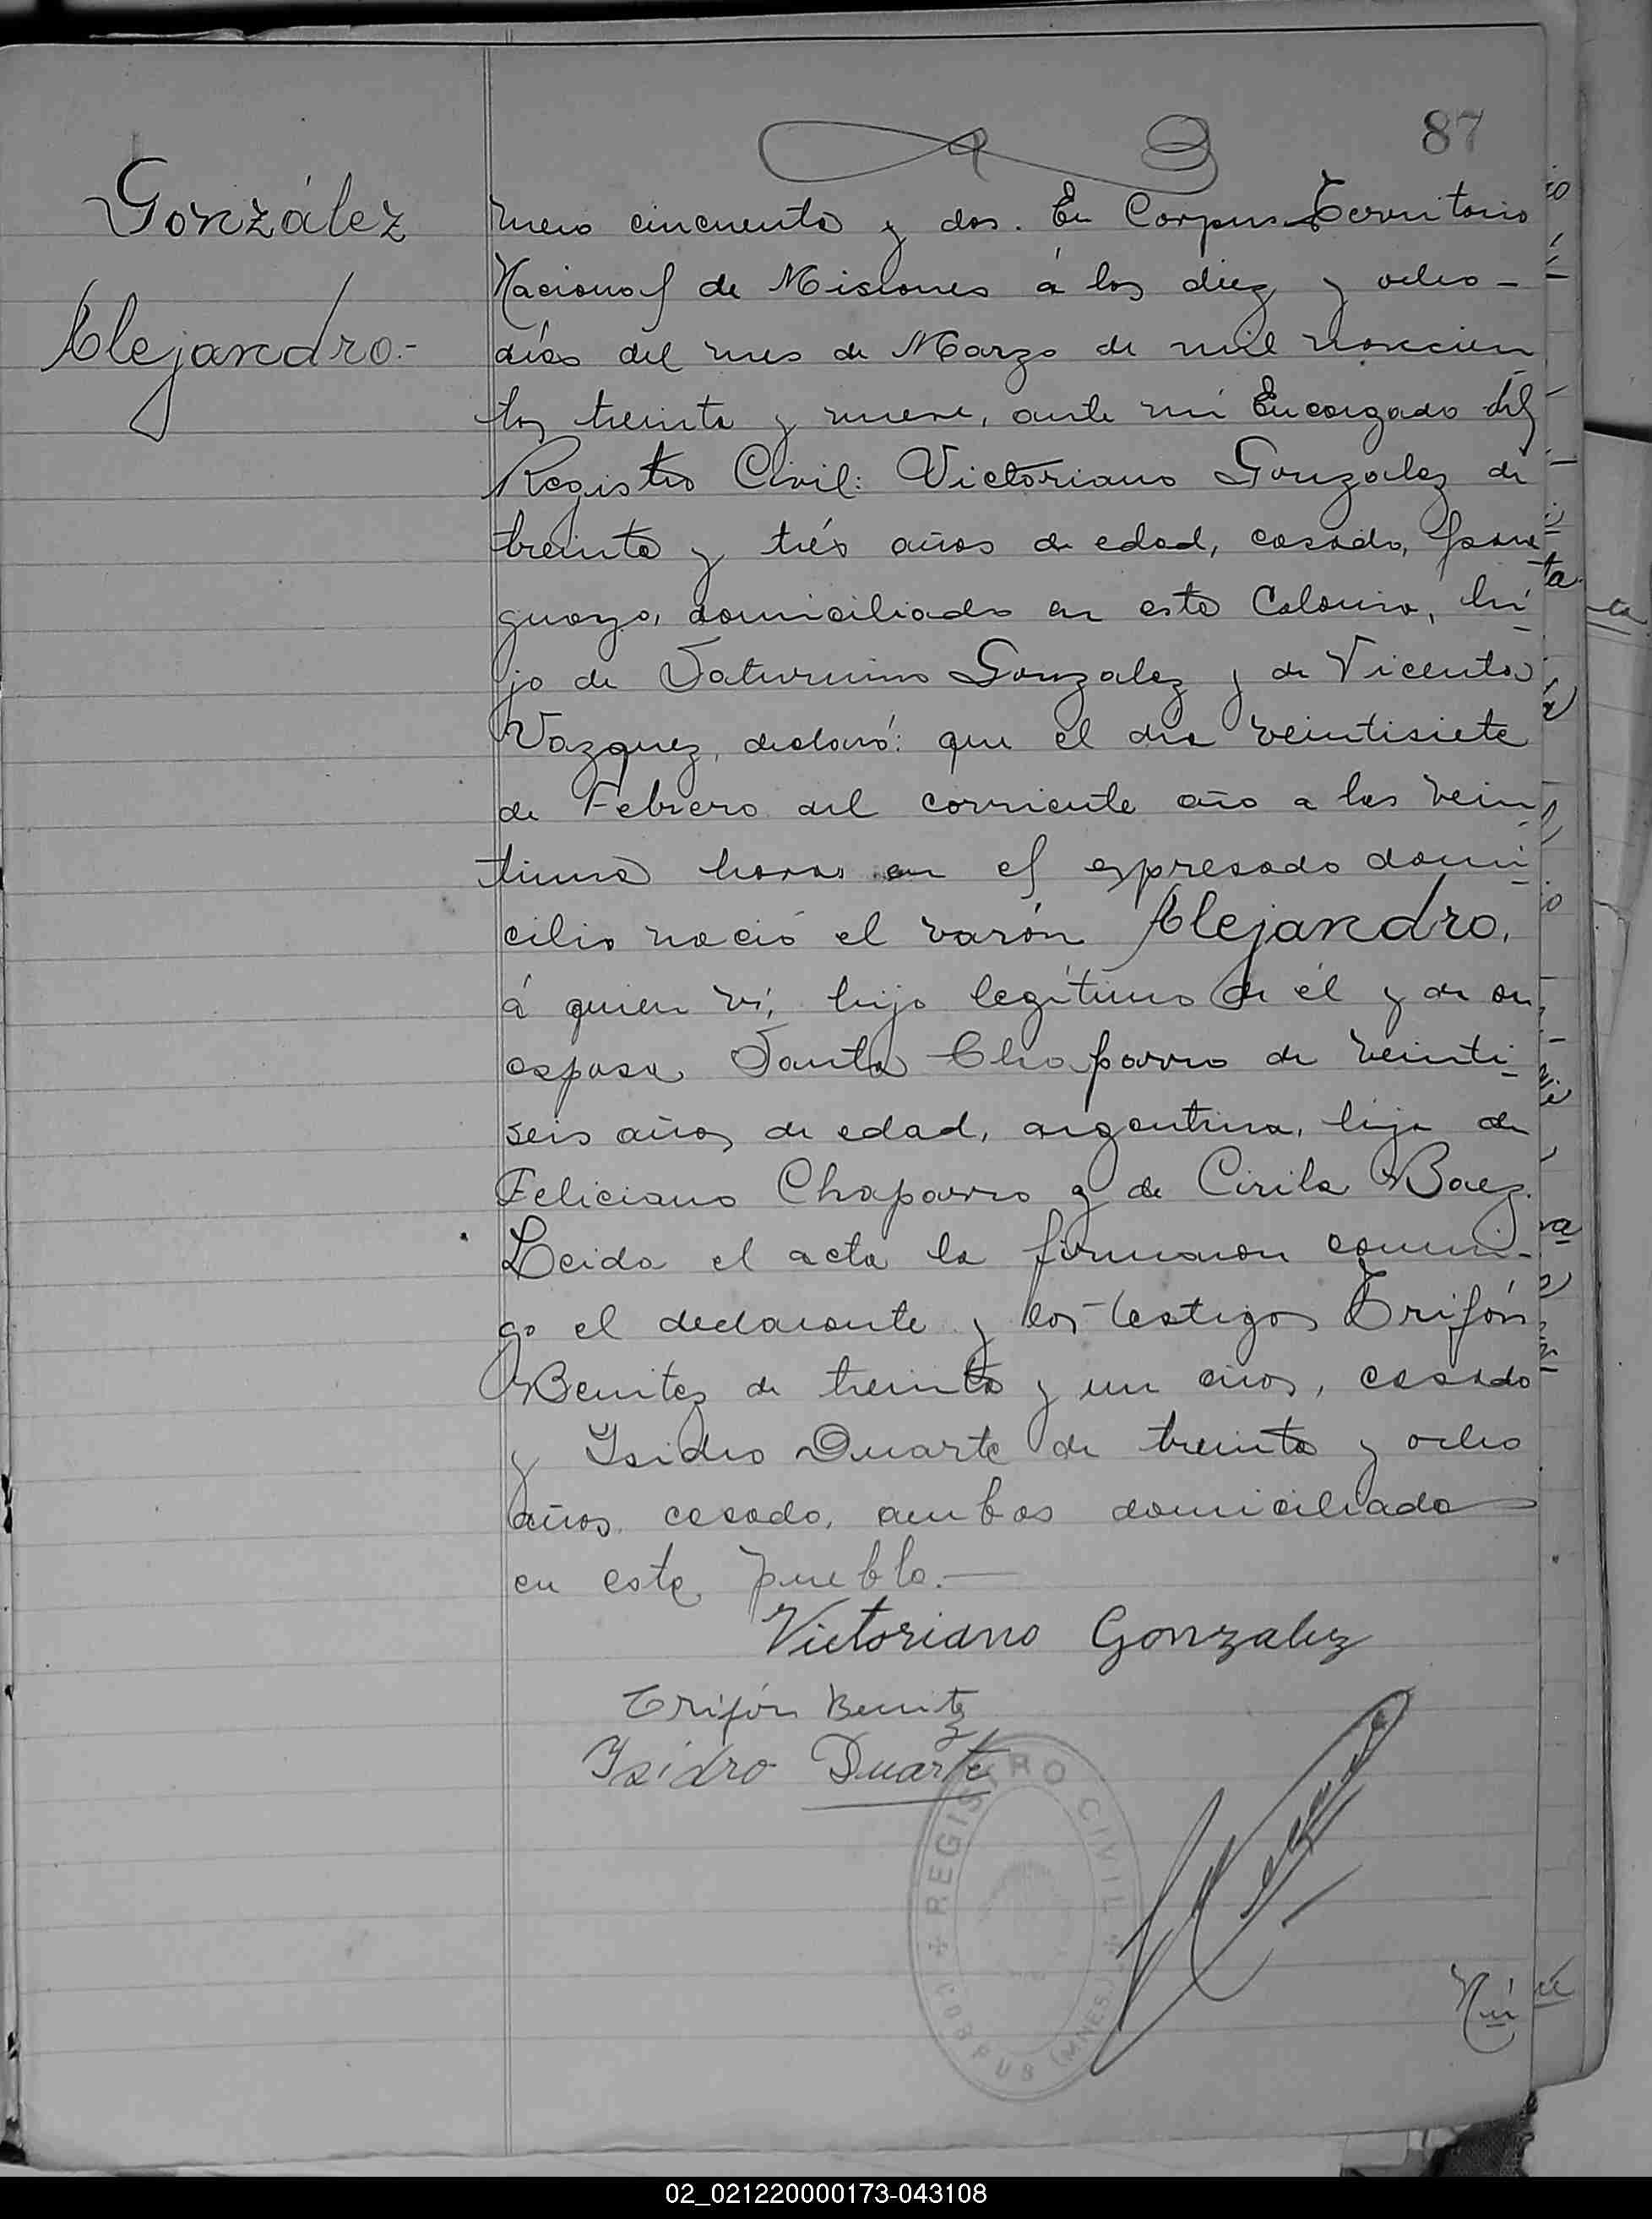 87
González
Alejandro.-
mero cincuenta y dos. En Corpus Territorio
Nacional de Misiones á los diez y ocho -
días del mes de Marzo de mil novecien
tos treinta y nueve, ante mi Encargado del
Registro Civil: Victoriano Gonzalez de
treinta y trés años de edad, casado, para
guayo, domiciliado en esta Colonia, hi
jo de Saturnino Gonzalez y de Vicenta
Vazquez, declaró: que el día veintisiete
de Febrero del corriente año a las vein
tiuna horas en el expresado domi
cilio nació el varón Alejandro,
á quien ví, hijo legítimo de él y de su
esposa Santa Chaparro de veinti
seis años de edad, argentina, hija de
Feliciano Chaparro y de Cirila Baez.
Leida el acta la firmaron conmi-
go el declarante y los testigos Trifón
Benitez de treinta y un años, casado
y Isidro Duarte de treinta y ocho
años casado, ambos domiciliado
en este pueblo.-
Victoriano Gonzalez
Trifón Benitz
Isidro Duarte
REGISTRO CIVIL
CORPUS (MNES.)
Nú
02_021220000173-043108